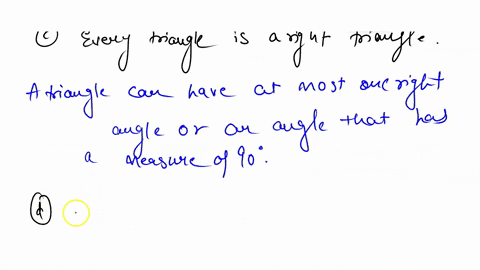 (c) Every triangle is a right triangle.
A triangle can have at most one right
angle or an angle that has
a measure of 90°.
(d)